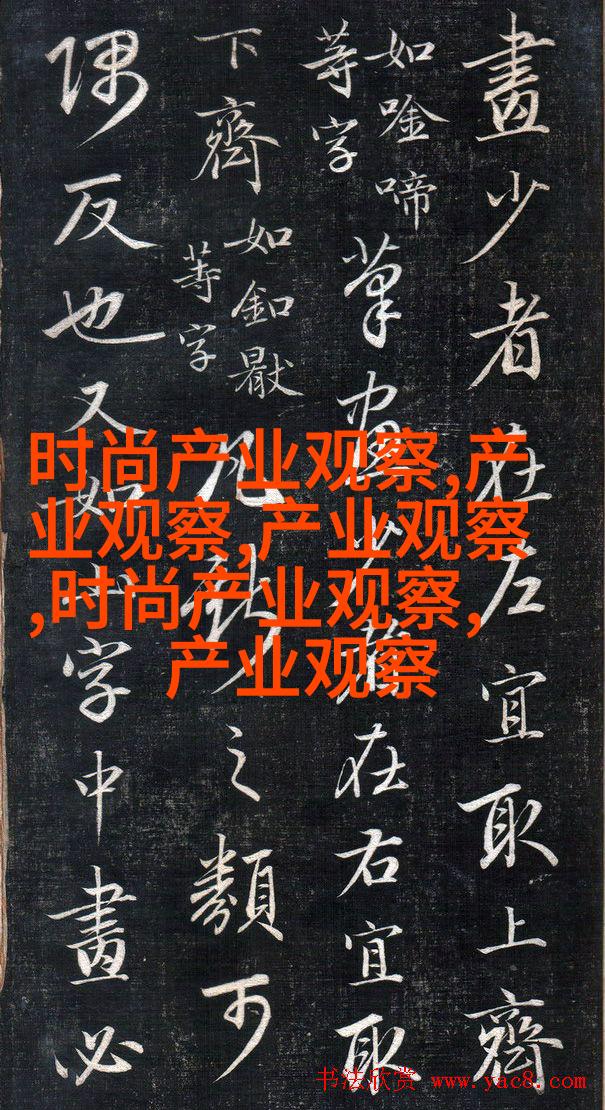 畫少者在左宜取上齊
如唫啼
等字
筆畫少者在右宜取
下齊
如釦
等字
凡之類可
隅反也又如山字中畫必
时尚产业观察,产
业观察,产业观察
,时尚产业观察,
产业观察
书法欣赏 www.yac8.com